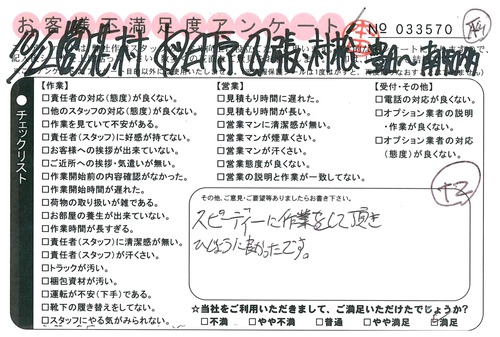 お客様不満足度アンケート
No 033570
【作業】
□責任者の対応(態度)が良くない。
□他のスタッフの対応(態度)が良くない。
□作業を見ていて不安がある。
□責任者(スタッフ)に好感が持てない。
□お客様への挨拶が出来ていない。
□ご近所への挨拶・気遣いが無い。
□作業開始前の内容確認がなかった。
□作業開始時間が遅れた。
□荷物の取り扱いが雑である。
□お部屋の養生が出来ていない。
□作業時間が長すぎる。
□責任者(スタッフ)に清潔感が無い。
□責任者(スタッフ)が汗くさい。
□トラックが汚い。
□梱包資材が汚い。
□運転が不安(下手)である。
□靴下の履き替えをしてない。
□スタッフにやる気がみられない。
【営業】
□見積もり時間に遅れた。
□見積もり時間が長い。
□営業マンに清潔感が無い。
□営業マンが煙草くさい。
□営業マンが汗くさい。
□営業態度が良くない。
□営業の説明と作業が一致してない。
【受付・その他】
□電話の対応が良くない。
□オプション業者の説明
・作業が良くない。
□オプション業者の対応
(態度)が良くない。
チェックリスト
その他、ご意見・ご要望等ありましたらお書き下さい。
スピーディーに作業をして頂き
ひじょうに良かったです。
☆当社をご利用いただきまして、ご満足いただけたでしょうか?
□不満 □やや不満 □普通 □やや満足 ☑満足